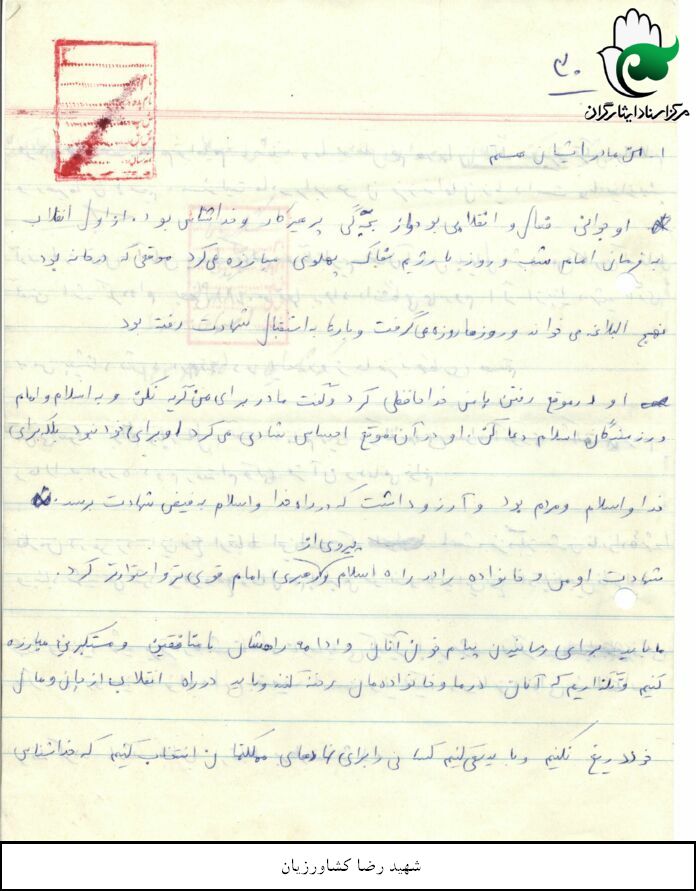 ۳۰
مرکز اسناد ایثارگران
۱. من مادر ایشان هستم
او جوانی فعال و انقلابی بود و از بچگی پرهیزکار و خداشناس بود. از اول انقلاب
به فرمان امام شب و روز با رژیم سفاک پهلوی مبارزه می‌کرد موقعی که در خانه بود
نهج البلاغه می خواند و روزها روزه می‌گرفت و بارها به استقبال شهادت رفته بود
او در موقع رفتن با من خداحافظی کرد و گفت مادر برای من گریه نکن و به اسلام و امام
و رزمندگان اسلام دعا کن او در آن موقع احساس شادی می‌کرد او برای خود نبود بلکه برای
خدا و اسلام و مردم بود و آرزو داشت که در راه خدا و اسلام به فیض شهادت برسد.
پیروی از
شهادت او من و خانواده را در راه اسلام و رهبری امام قوی تر و استوارتر کرد.
ما باید برای رسانیدن پیام خون آنان و ادامه راهشان با منافقین و مستکبرین مبارزه
کنیم و نگذاریم که آنان در ما و خانواده‌مان رخنه کنند و باید در راه انقلاب از جان و مال
خود دریغ نکنیم و باید سعی کنیم کسانی را برای نهادهای مملکتمان انتخاب کنیم که خداشناس
شهید رضا کشاورزیان